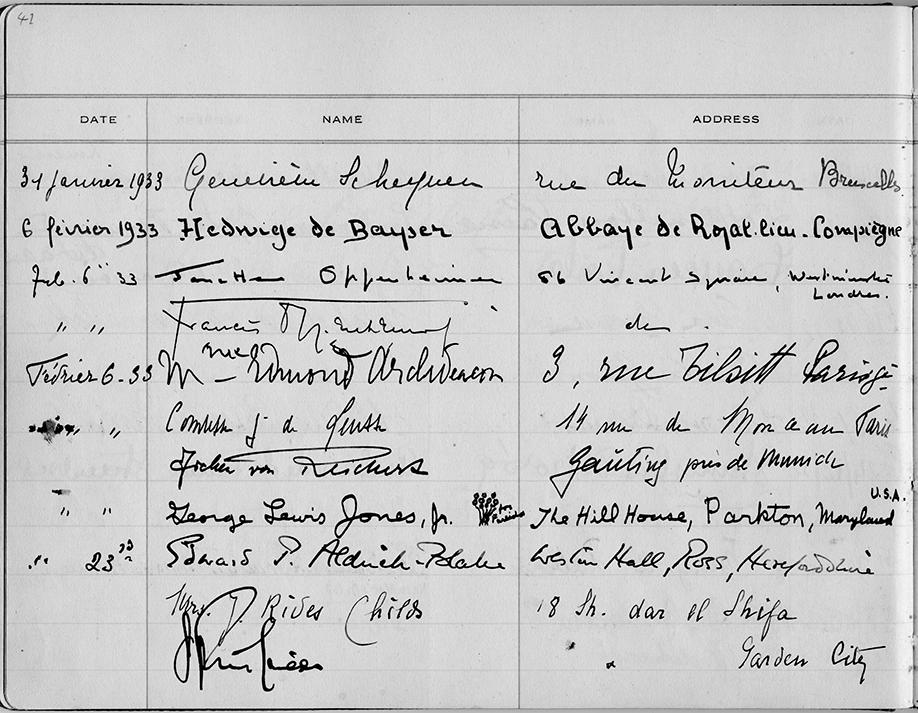 41
DATE NAME ADDRESS
31 janvier 1933 Geneviève rue du Moniteur Bruxelles
6 février 1933 Hedwige de Bayser Abbaye de Royal.lieu - Compiègne
Feb. 6 33 Oppenheimer 66 Vincent Square, Westminster
Londres.
" " Francis do .
Février 6 - 33 Mme Edmond Archdeacon 3, rue Tilsitt Paris
" " Comtesse J de 14 rue de Monceau Paris
von Gauting près de Munich
U.S.A.
" " George Lewis Jones, Jr. The Hill House, Parkton, Maryland
" 23rd Edward P. Aldrich-Blake Weston Hall, Ross, Herefordshire
Mrs. J. Rives Childs 18 Sh. dar el Shifa
" Garden City